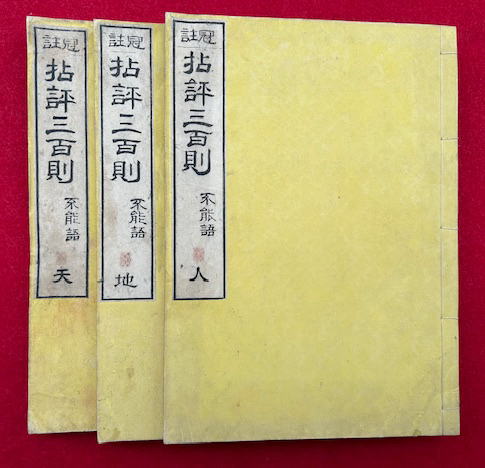 冠註
拈評三百則
不能語
人
冠註
拈評三百則
不能語
地
冠註
拈評三百則
不能語
天